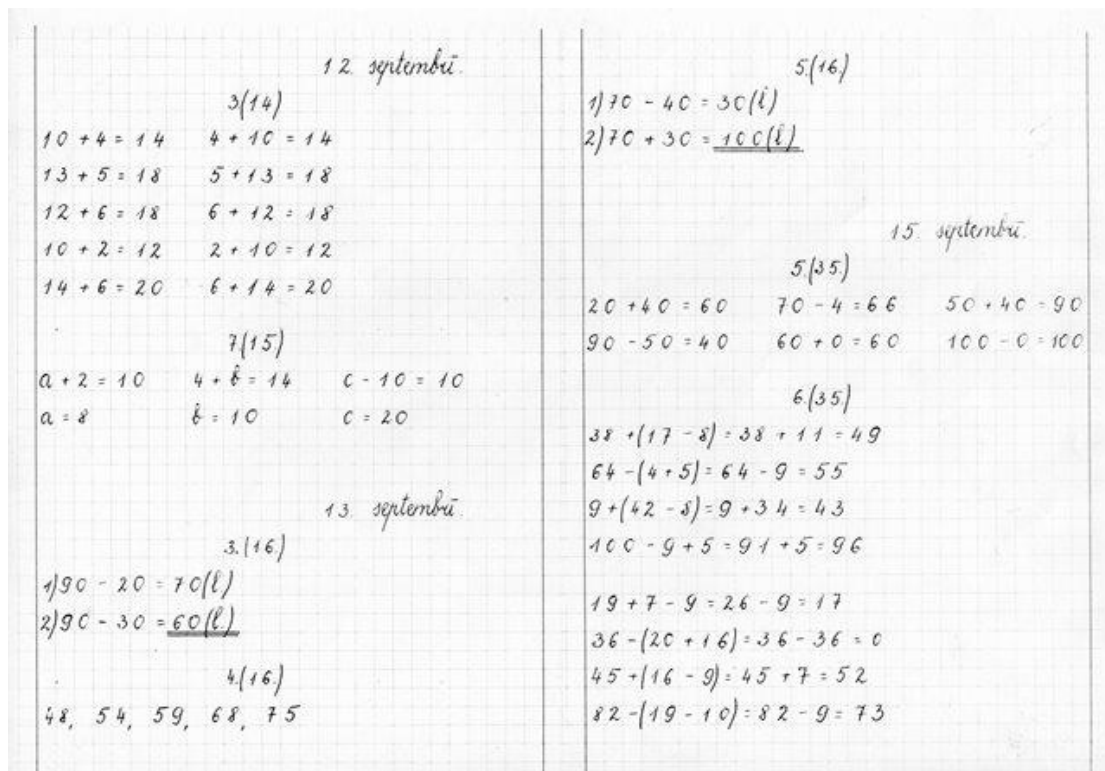 12. septembrī.
3(14)
10 + 4 = 14 4 + 10 = 14
13 + 5 = 18 5 + 13 = 18
12 + 6 = 18 6 + 12 = 18
10 + 2 = 12 2 + 10 = 12
14 + 6 = 20 6 + 14 = 20
7(15)
a + 2 = 10 4 + b = 14 c - 10 = 10
a = 8 b = 10 c = 20
13. septembrī
3.(16.)
1)90 - 20 = 70(l)
2)90 - 30 = 60(l)
4.(16.)
48, 54, 59, 68, 75
5.(16.)
1)70 - 40 = 30(l)
2)70 + 30 = 100(l)
15. septembrī.
5.(35.)
20 + 40 = 60 70 - 4 = 66 50 + 40 = 90
90 - 50 = 40 60 + 0 = 60 100 - 0 = 100
6.(35.)
38 + (17 - 8) = 38 + 11 = 49
64 - (4 + 5) = 64 - 9 = 55
9 + (42 - 8) = 9 + 34 = 43
100 - 9 + 5 = 91 + 5 = 96
19 + 7 - 9 = 26 - 9 = 17
36 - (20 + 16) = 36 - 36 = 0
45 + (16 - 9) = 45 + 7 = 52
82 - (19 - 10) = 82 - 9 = 73